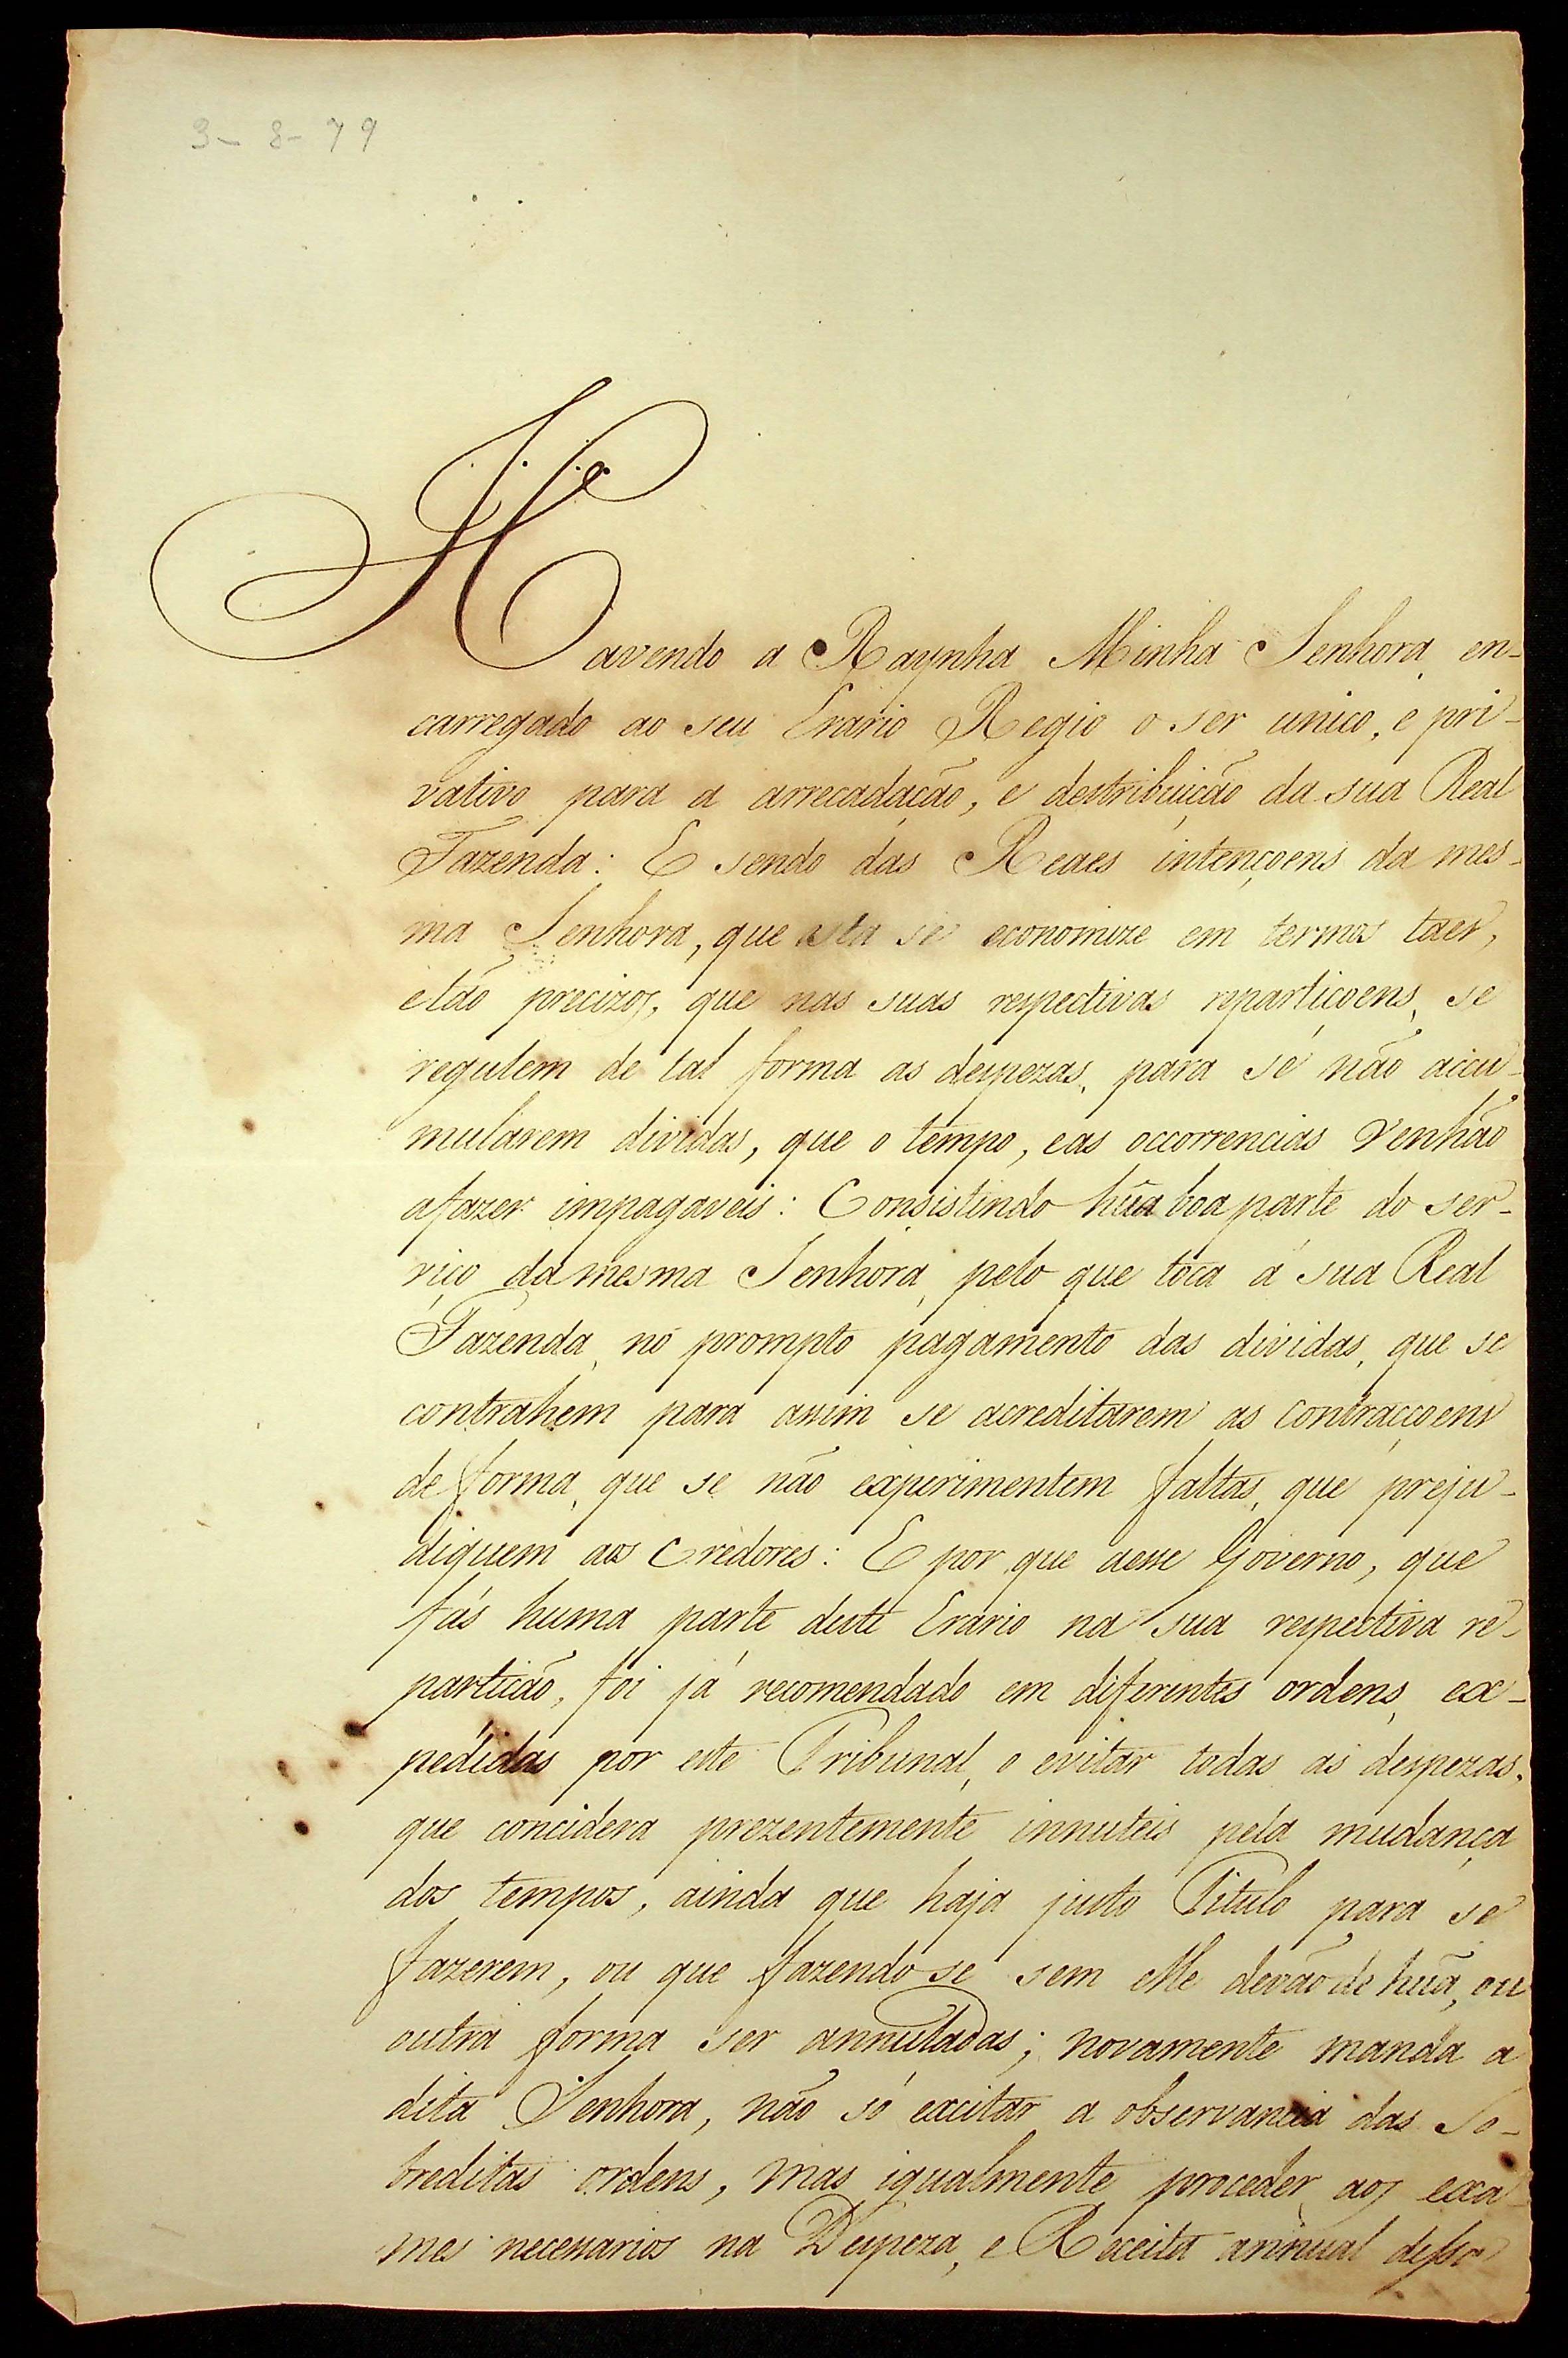 3-8-79
Havendo a Raynha Minha Senhora, en-
carregado ao seu Erario Regio o ser unico, e pri-
vativo para a arrecadação, e destribuição da sua Real
Fazenda: E sendo das Reaes intençoens da mes-
ma Senhora, que esta se economize em termos taes,
e tão precizos, que nas suas respectivas repartiçoens, se
regulem de tal forma as despezas, para se não accu-
mularem dividas, que o tempo, e as occorrencias venhão
a fazer impagaveis: Consistindo hũa boa parte do ser-
viço da mesma Senhora, pelo que toca á sua Real
Fazenda, no prompto pagamento das dividas, que se
contrahem para assim se acreditarem as contracçoens
de forma, que se não experimentem faltas, que preju-
diquem aos Credores: E por que aesse Governo, que
fás huma parte deste Erario na sua respectiva re-
partição, foi já recomendado em diferentes ordens, ex-
pedidas por este Tribunal, o evitar todas as despezas,
que concidera prezentemente innuteis pela mudança
dos tempos, ainda que haja justo Titulo para se
fazerem, ou que fazendo se sem elle devão de hũa, ou
outra forma ser annuladas; novamente manda a
dita Senhora, não só excitar a observancia das So-
breditas ordens, mas igualmente proceder aos exa-
mes necessarios na Despeza, e Receita annual dessa